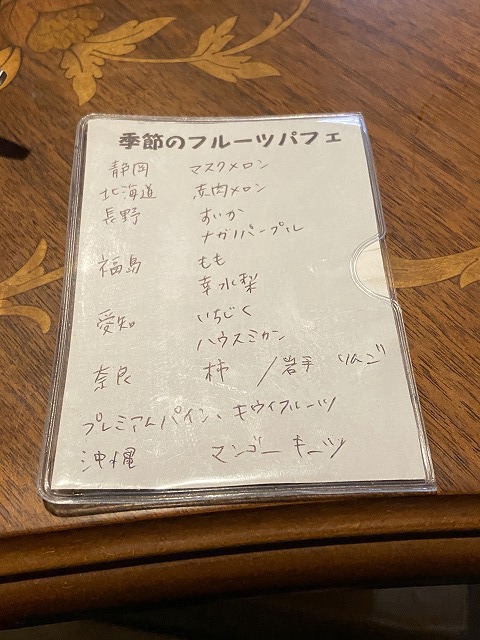 季節のフルーツパフェ
静岡 マスクメロン
北海道 赤肉メロン
長野 すいか
ナガノパープル
福島 もも
幸水梨
愛知 いちじく
ハウスミカン
奈良 柿 / 岩手 りんご
プレミアムパイン、キウイフルーツ
沖縄 マンゴー キーツ